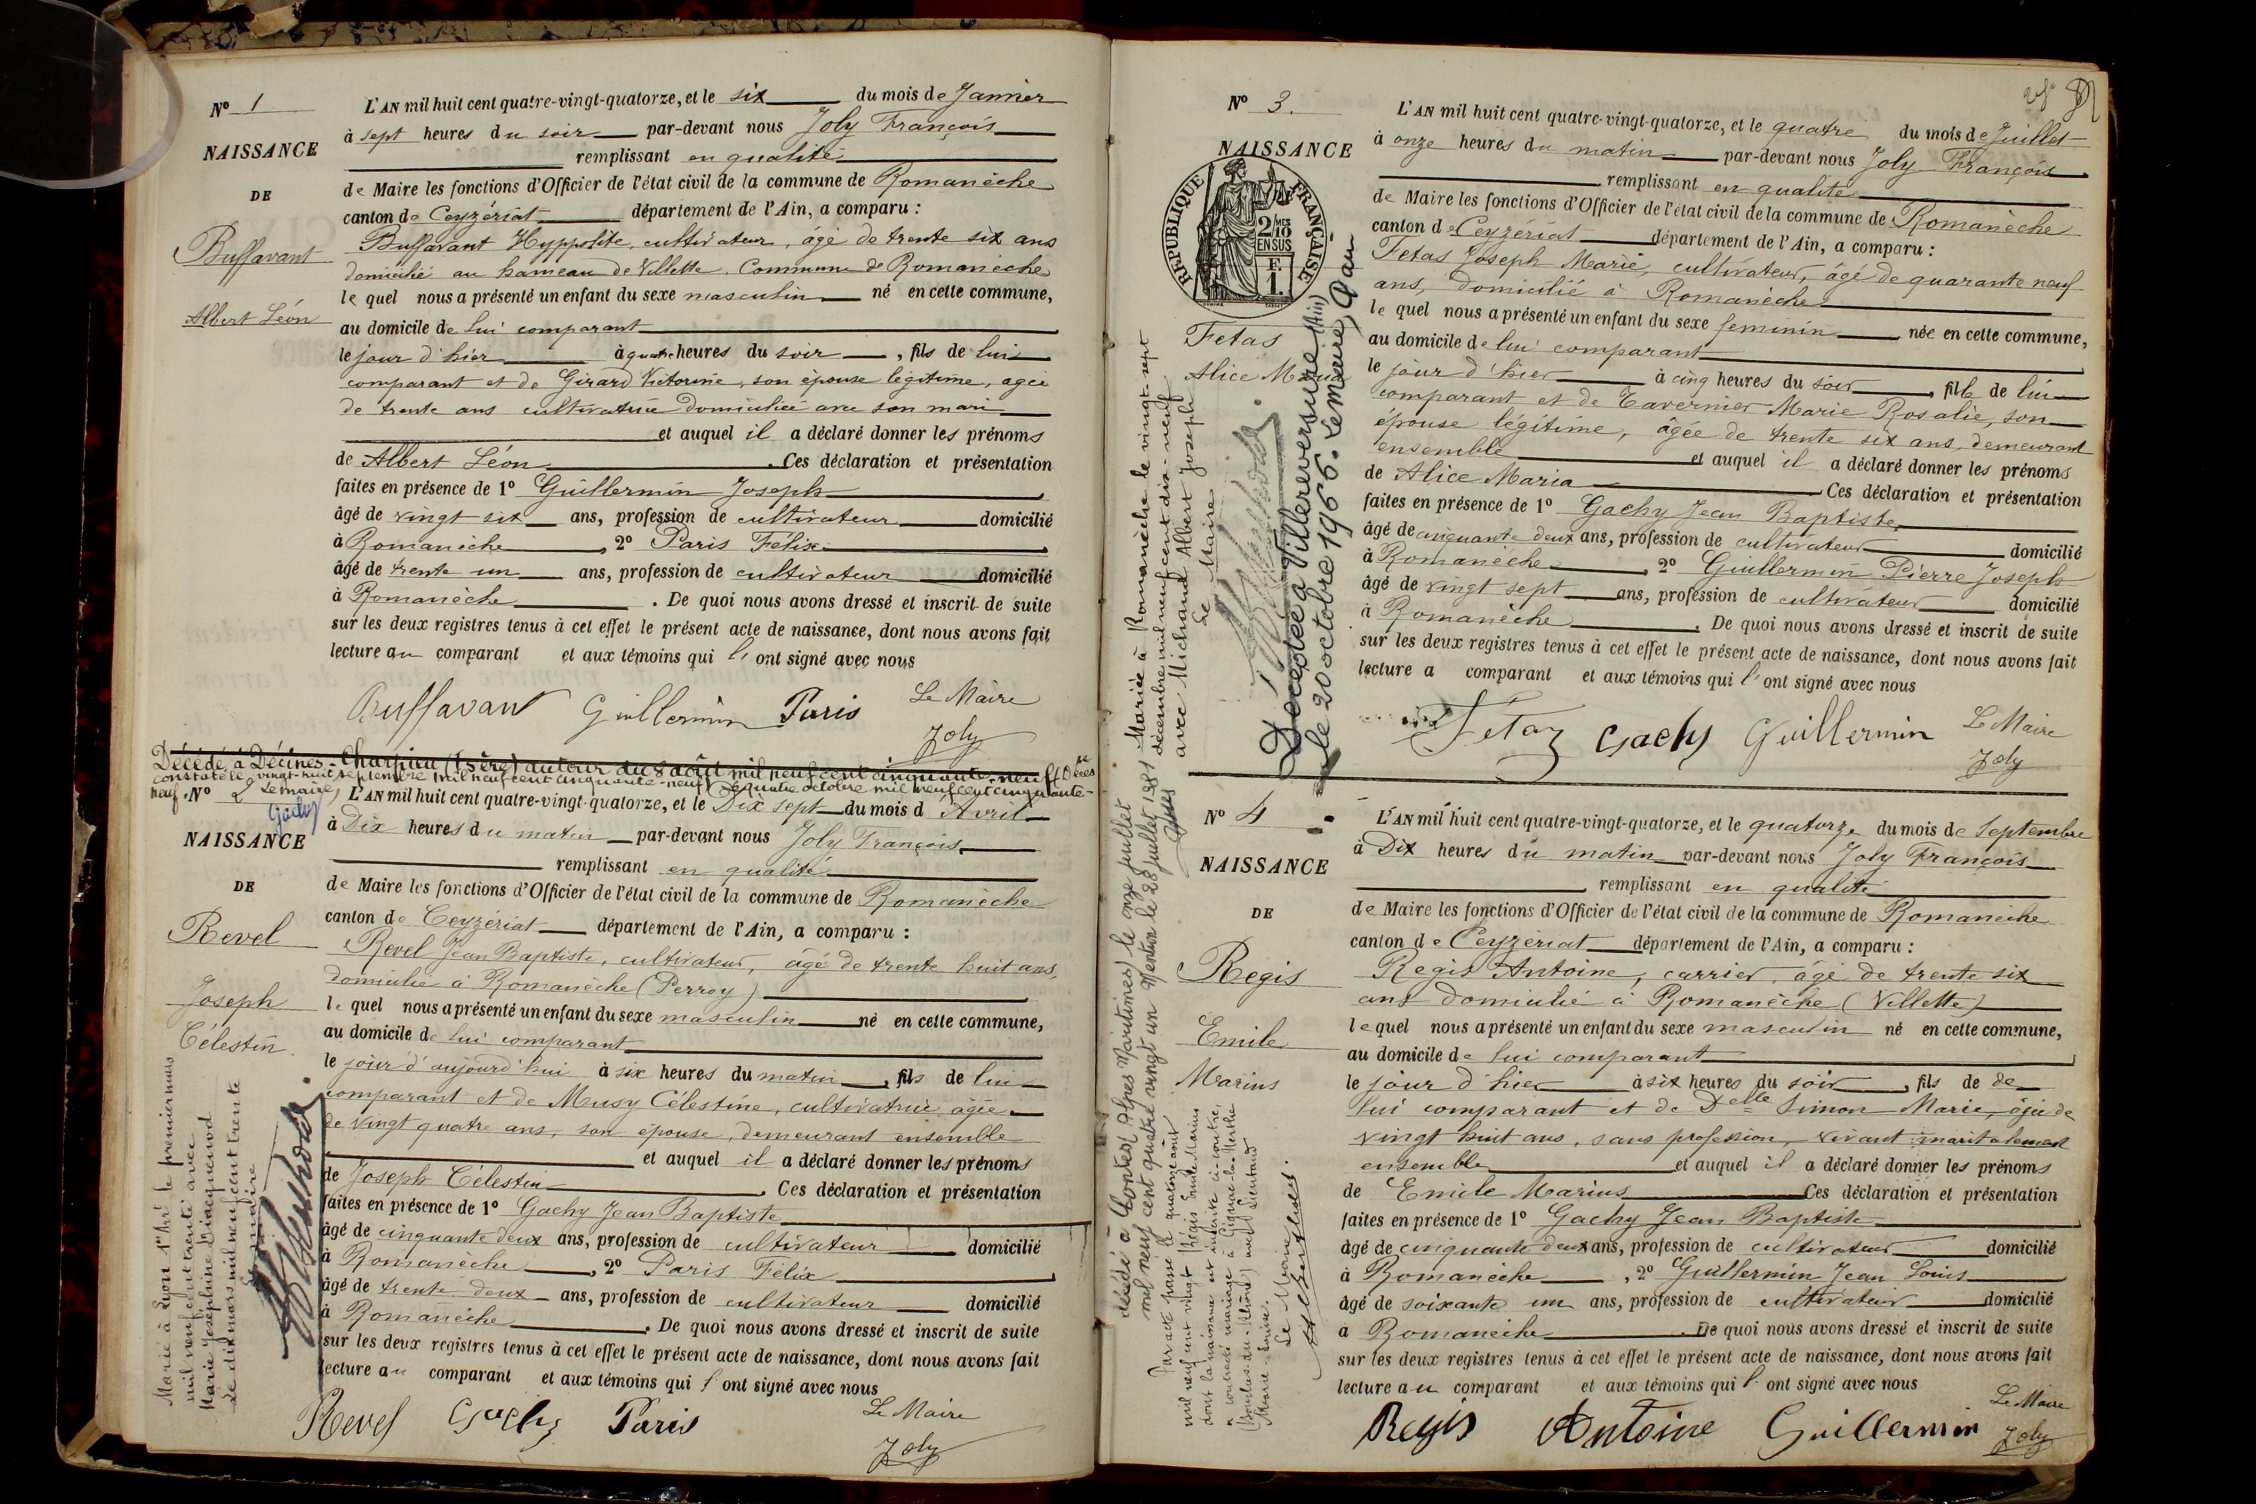 N° 1
NAISSANCE
DE
Buffavant
Albert Léon
L'AN mil huit cent quatre-vingt-quatorze, et le six du mois de Janvier
à sept heures du soir par-devant nous Joly François
remplissant en qualité
de Maire les fonctions d'Officier de l'état civil de la commune de Romanèche
canton de Ceyzériat département de l'Ain, a comparu :
Buffavant Hyppolite, cultivateur, âgé de trente six ans
domicilié au hameau de Villette, Commune de Romanèche
le quel nous a présenté un enfant du sexe masculin né en cette commune,
au domicile de lui comparant
le jour d'hier à quatre heures du soir, fils de lui
comparant et de Girard Victorine, son épouse légitime, agée
de trente ans cultivatrice domiciliée avec son mari
et auquel il a déclaré donner les prénoms
de Albert Léon. Ces déclaration et présentation
faites en présence de 1° Guillermin Joseph
âgé de vingt six ans, profession de cultivateur domicilié
à Romanèche, 2° Paris Félix
âgé de trente un ans, profession de cultivateur domicilié
à Romanèche. De quoi nous avons dressé et inscrit de suite
sur les deux registres tenus à cet effet le présent acte de naissance, dont nous avons fait
lecture au comparant et aux témoins qui l'ont signé avec nous
Buffavant Guillermin Paris Le Maire
Joly
Décédé à Décines-Charpieu (Isère) autour du 8 août mil neuf cent cinquante-neuf
constaté le vingt-huit septembre mil neuf cent cinquante-neuf. Le quatre octobre mil neuf cent cinquante-
neuf. Le maire,
Gachy
N° 2
NAISSANCE
DE
Revel
Joseph
Célestin
L'AN mil huit cent quatre-vingt-quatorze, et le Dix sept du mois d'Avril
à Dix heures du matin par-devant nous Joly François
remplissant en qualité
de Maire les fonctions d'Officier de l'état civil de la commune de Romanèche
canton de Ceyzériat département de l'Ain, a comparu :
Revel Jean Baptiste, cultivateur, âgé de trente huit ans,
domicilié à Romanèche (Perroy)
le quel nous a présenté un enfant du sexe masculin né en cette commune,
au domicile de lui comparant
le jour d'aujourd'hui à six heures du matin, fils de lui
comparant et de Musy Célestine, cultivatrice, agée
de vingt quatre ans, son épouse, demeurant ensemble
et auquel il a déclaré donner les prénoms
de Joseph Célestin. Ces déclaration et présentation
faites en présence de 1° Gachy Jean Baptiste
âgé de cinquante deux ans, profession de cultivateur domicilié
à Romanèche, 2° Paris Félix
âgé de trente deux ans, profession de cultivateur domicilié
à Romanèche. De quoi nous avons dressé et inscrit de suite
sur les deux registres tenus à cet effet le présent acte de naissance, dont nous avons fait
lecture au comparant et aux témoins qui l'ont signé avec nous
Revel Gachy Paris Le Maire
Joly
Marié à Lyon 1er Arrt le premier mars
mil neuf cent trente avec
Marie Joséphine
Le dix mars mil neuf cent trente
Le maire
N° 3.
NAISSANCE
RÉPUBLIQUE FRANÇAISE
2/10 MES
EN SUS
F.
1.
Fetas
Alice Maria
L'AN mil huit cent quatre-vingt-quatorze, et le quatre du mois de Juillet
à onze heures du matin par-devant nous Joly François
remplissant en qualité
de Maire les fonctions d'Officier de l'état civil de la commune de Romanèche
canton de Ceyzériat département de l'Ain, a comparu :
Fetas Joseph Marie, cultivateur, âgé de quarante neuf
ans, domicilié à Romanèche
le quel nous a présenté un enfant du sexe feminin née en cette commune,
au domicile de lui comparant
le jour d'hier à cinq heures du soir, fille de lui
comparant et de Tavernier Marie Rosalie, son
épouse légitime, agée de trente six ans, demeurant
ensemble et auquel il a déclaré donner les prénoms
de Alice Maria. Ces déclaration et présentation
faites en présence de 1° Gachy Jean Baptiste
âgé de cinquante deux ans, profession de cultivateur domicilié
à Romanèche, 2° Guillermin Pierre Joseph
âgé de vingt sept ans, profession de cultivateur domicilié
à Romanèche. De quoi nous avons dressé et inscrit de suite
sur les deux registres tenus à cet effet le présent acte de naissance, dont nous avons fait
lecture a comparant et aux témoins qui l'ont signé avec nous
Fetaz Gachy Guillermin Le Maire
Joly
Mariée à Romanèche le vingt-sept
décembre mil neuf cent dix-neuf
avec Michaud Albert Joseph
Le Maire
Décédée à Villereversure (Ain)
le 20 octobre 1966. Le maire,
N° 4
NAISSANCE
DE
Regis
Emile
Marius
L'AN mil huit cent quatre-vingt-quatorze, et le quatorze du mois de Septembre
à Dix heures du matin par-devant nous Joly François
remplissant en qualité
de Maire les fonctions d'Officier de l'état civil de la commune de Romanèche
canton de Ceyzériat département de l'Ain, a comparu :
Regis Antoine, carrier, âgé de trente six
ans domicilié à Romanèche (Villette)
le quel nous a présenté un enfant du sexe masculin né en cette commune,
au domicile de lui comparant
le jour d'hier à six heures du soir, fils de de
lui comparant et de Delle Simon Marie, âgée de
vingt huit ans, sans profession, vivant maritalement
ensemble et auquel il a déclaré donner les prénoms
de Emile Marius Ces déclaration et présentation
faites en présence de 1° Gachy Jean Baptiste
âgé de cinquante deux ans, profession de cultivateur domicilié
à Romanèche, 2° Guillermin Jean Louis
âgé de soixante un ans, profession de cultivateur domicilié
à Romanèche. De quoi nous avons dressé et inscrit de suite
sur les deux registres tenus à cet effet le présent acte de naissance, dont nous avons fait
lecture au comparant et aux témoins qui l'ont signé avec nous
Regis Antoine Guillermin Le Maire
Joly
décédé à Contes (Alpes Maritimes) le onze juillet
mil neuf cent quatre vingt un Mention le 28 juillet 1981
Par acte passé le quatorze août
mil neuf cent vingt Régis Emile Marius
dont la naissance est inscrite ci-contre,
a contracté mariage à Gignac-la-Nerthe
(Bouches-du-Rhône) avec Lieutaud
Marie Louise.
Le Maire